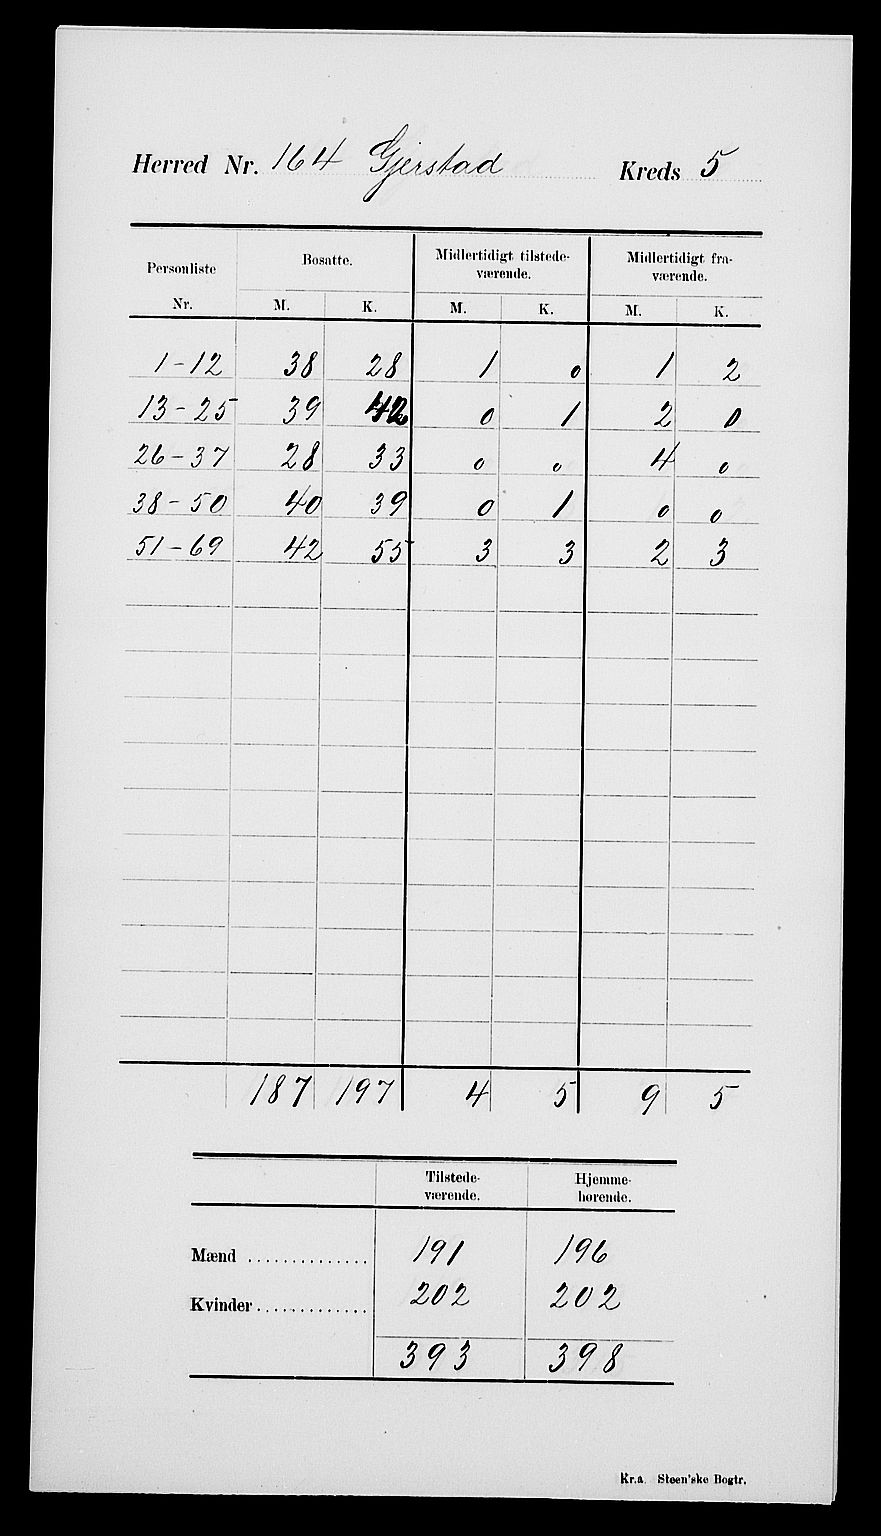 Herred Nr. 164 Gjerstad Kreds 5
Personliste Nr. Bosatte. Midlertidigt tilstede-værende. Midlertidigt fra-værende.
M. K. M. K. M. K.
1-12 38 28 1 0 1 2
13-25 39 42 0 1 2 0
26-37 28 33 0 0 4 0
38-50 40 39 0 1 0 0
51-69 42 55 3 3 2 3
187 197 4 5 9 5
Tilstede-værende. Hjemme-hørende.
Mænd .............. 191 196
Kvinder ............. 202 202
393 398
Kr.a. Steen'ske Bogtr.